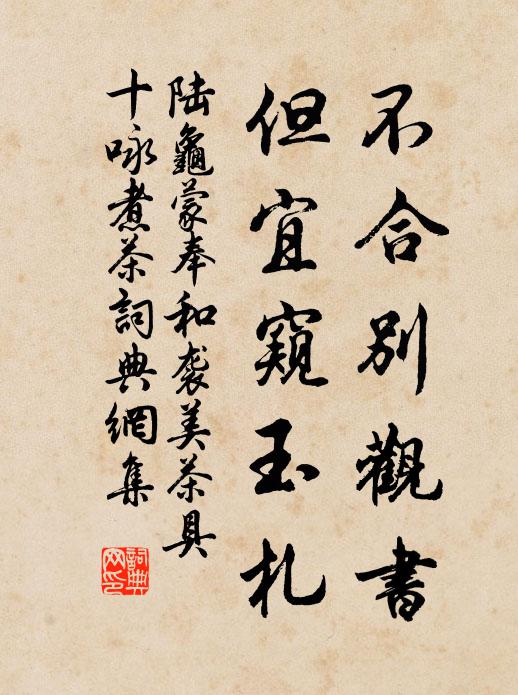 不合別觀書
但宜窺玉札
陸龜蒙奉和袭美茶具
十咏煮茶詞典網集
詞典網印